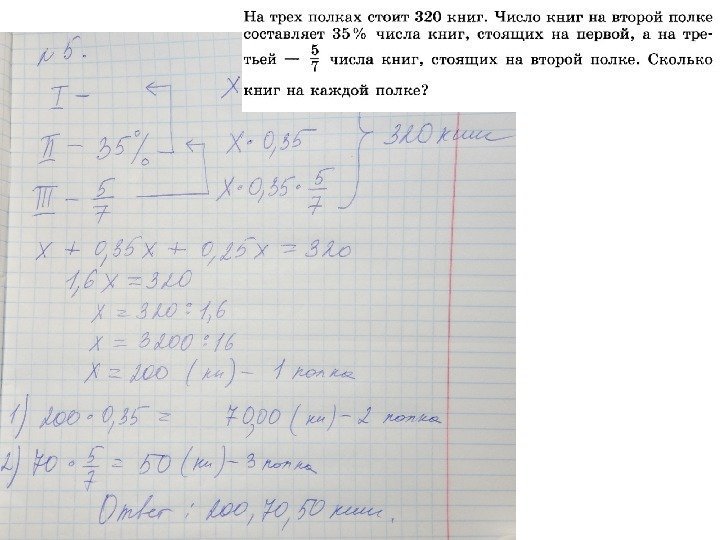 На трех полках стоит 320 книг. Число книг на второй полке
составляет 35% числа книг, стоящих на первой, а на тре-
тьей — 5/7 числа книг, стоящих на второй полке. Сколько
книг на каждой полке?
№5.
I – X
II – 35% X · 0,35 320 книг
III – 5/7 X · 0,35 · 5/7
x + 0,35x + 0,25x = 320
1,6x = 320
x = 320 : 1,6
x = 3200 : 16
x = 200 (кн) – 1 полка
1) 200 · 0,35 = 70,00 (кн) – 2 полка
2) 70 · 5/7 = 50 (кн) – 3 полка
Ответ : 200, 70, 50 книг.